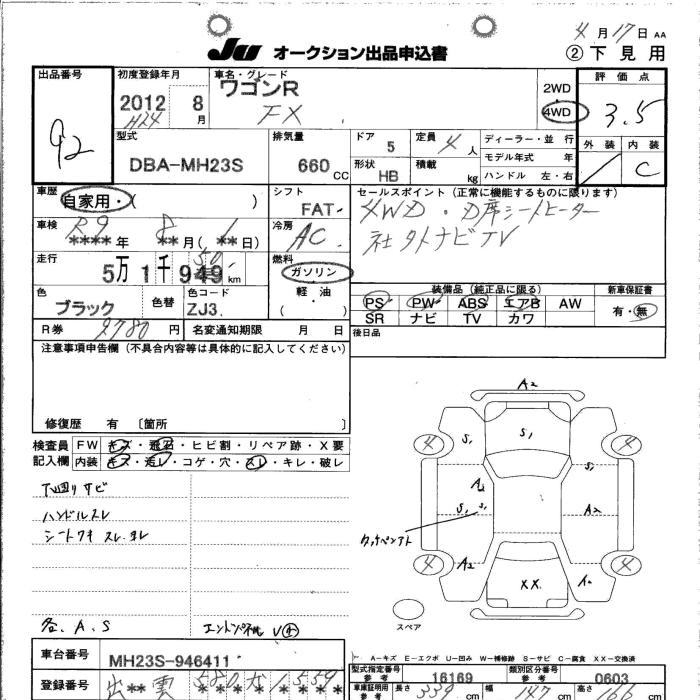 4月17日 AA
JU オークション出品申込書 ②下見用
出品番号 92
初度登録年月 2012 8月 H24
車名・グレード ワゴンR FX
2WD
4WD
評価点 3.5
外装 内装 C
型式 DBA-MH23S
排気量 660 CC
ドア 5
定員 4人
形状 HB
積載 kg
ディーラー・並行
モデル年式 年
ハンドル 左・右
車歴 自家用・( )
シフト FAT
セールスポイント(正常に機能するものに限ります)
4WD・D席シートヒーター
社外ナビTV
車検 R9 **** 年 8 ** 月( 1 ** 日)
冷房 AC
走行 5万1千949km
燃料 ガソリン
軽・油
( )
色 ブラック
色替
色コード ZJ3
装備品(純正品に限る)
PS PW ABS エアB AW
SR ナビ TV カワ
新車保証書 有・無
R券 9780円
名変通知期限 月 日
後日品
注意事項申告欄(不具合内容等は具体的に記入してください)
修復歴 有 〔箇所 〕
検査員 FW キズ・飛石・ヒビ割・リペア跡・X要
記入欄 内装 キズ・汚レ・コゲ・穴・スレ・キレ・破レ
下回りサビ
ハンドルスレ
シートワキ スレ.ヨレ
各.A.S
A2
4 S1 S1 4
A1 S1
S1 S1 A2
タッチペンアト
4 A2 XX A2 4
スペア
A-キズ E-エクボ U-凹み W-補修跡 S-サビ C-腐食 XX-交換済
車台番号 MH23S-946411
型式指定番号 参考 16169
類別区分番号 参考 0603
登録番号 出** 雲 580
車庫証明用 参考 長さ 339cm 幅 147cm 高さ 166